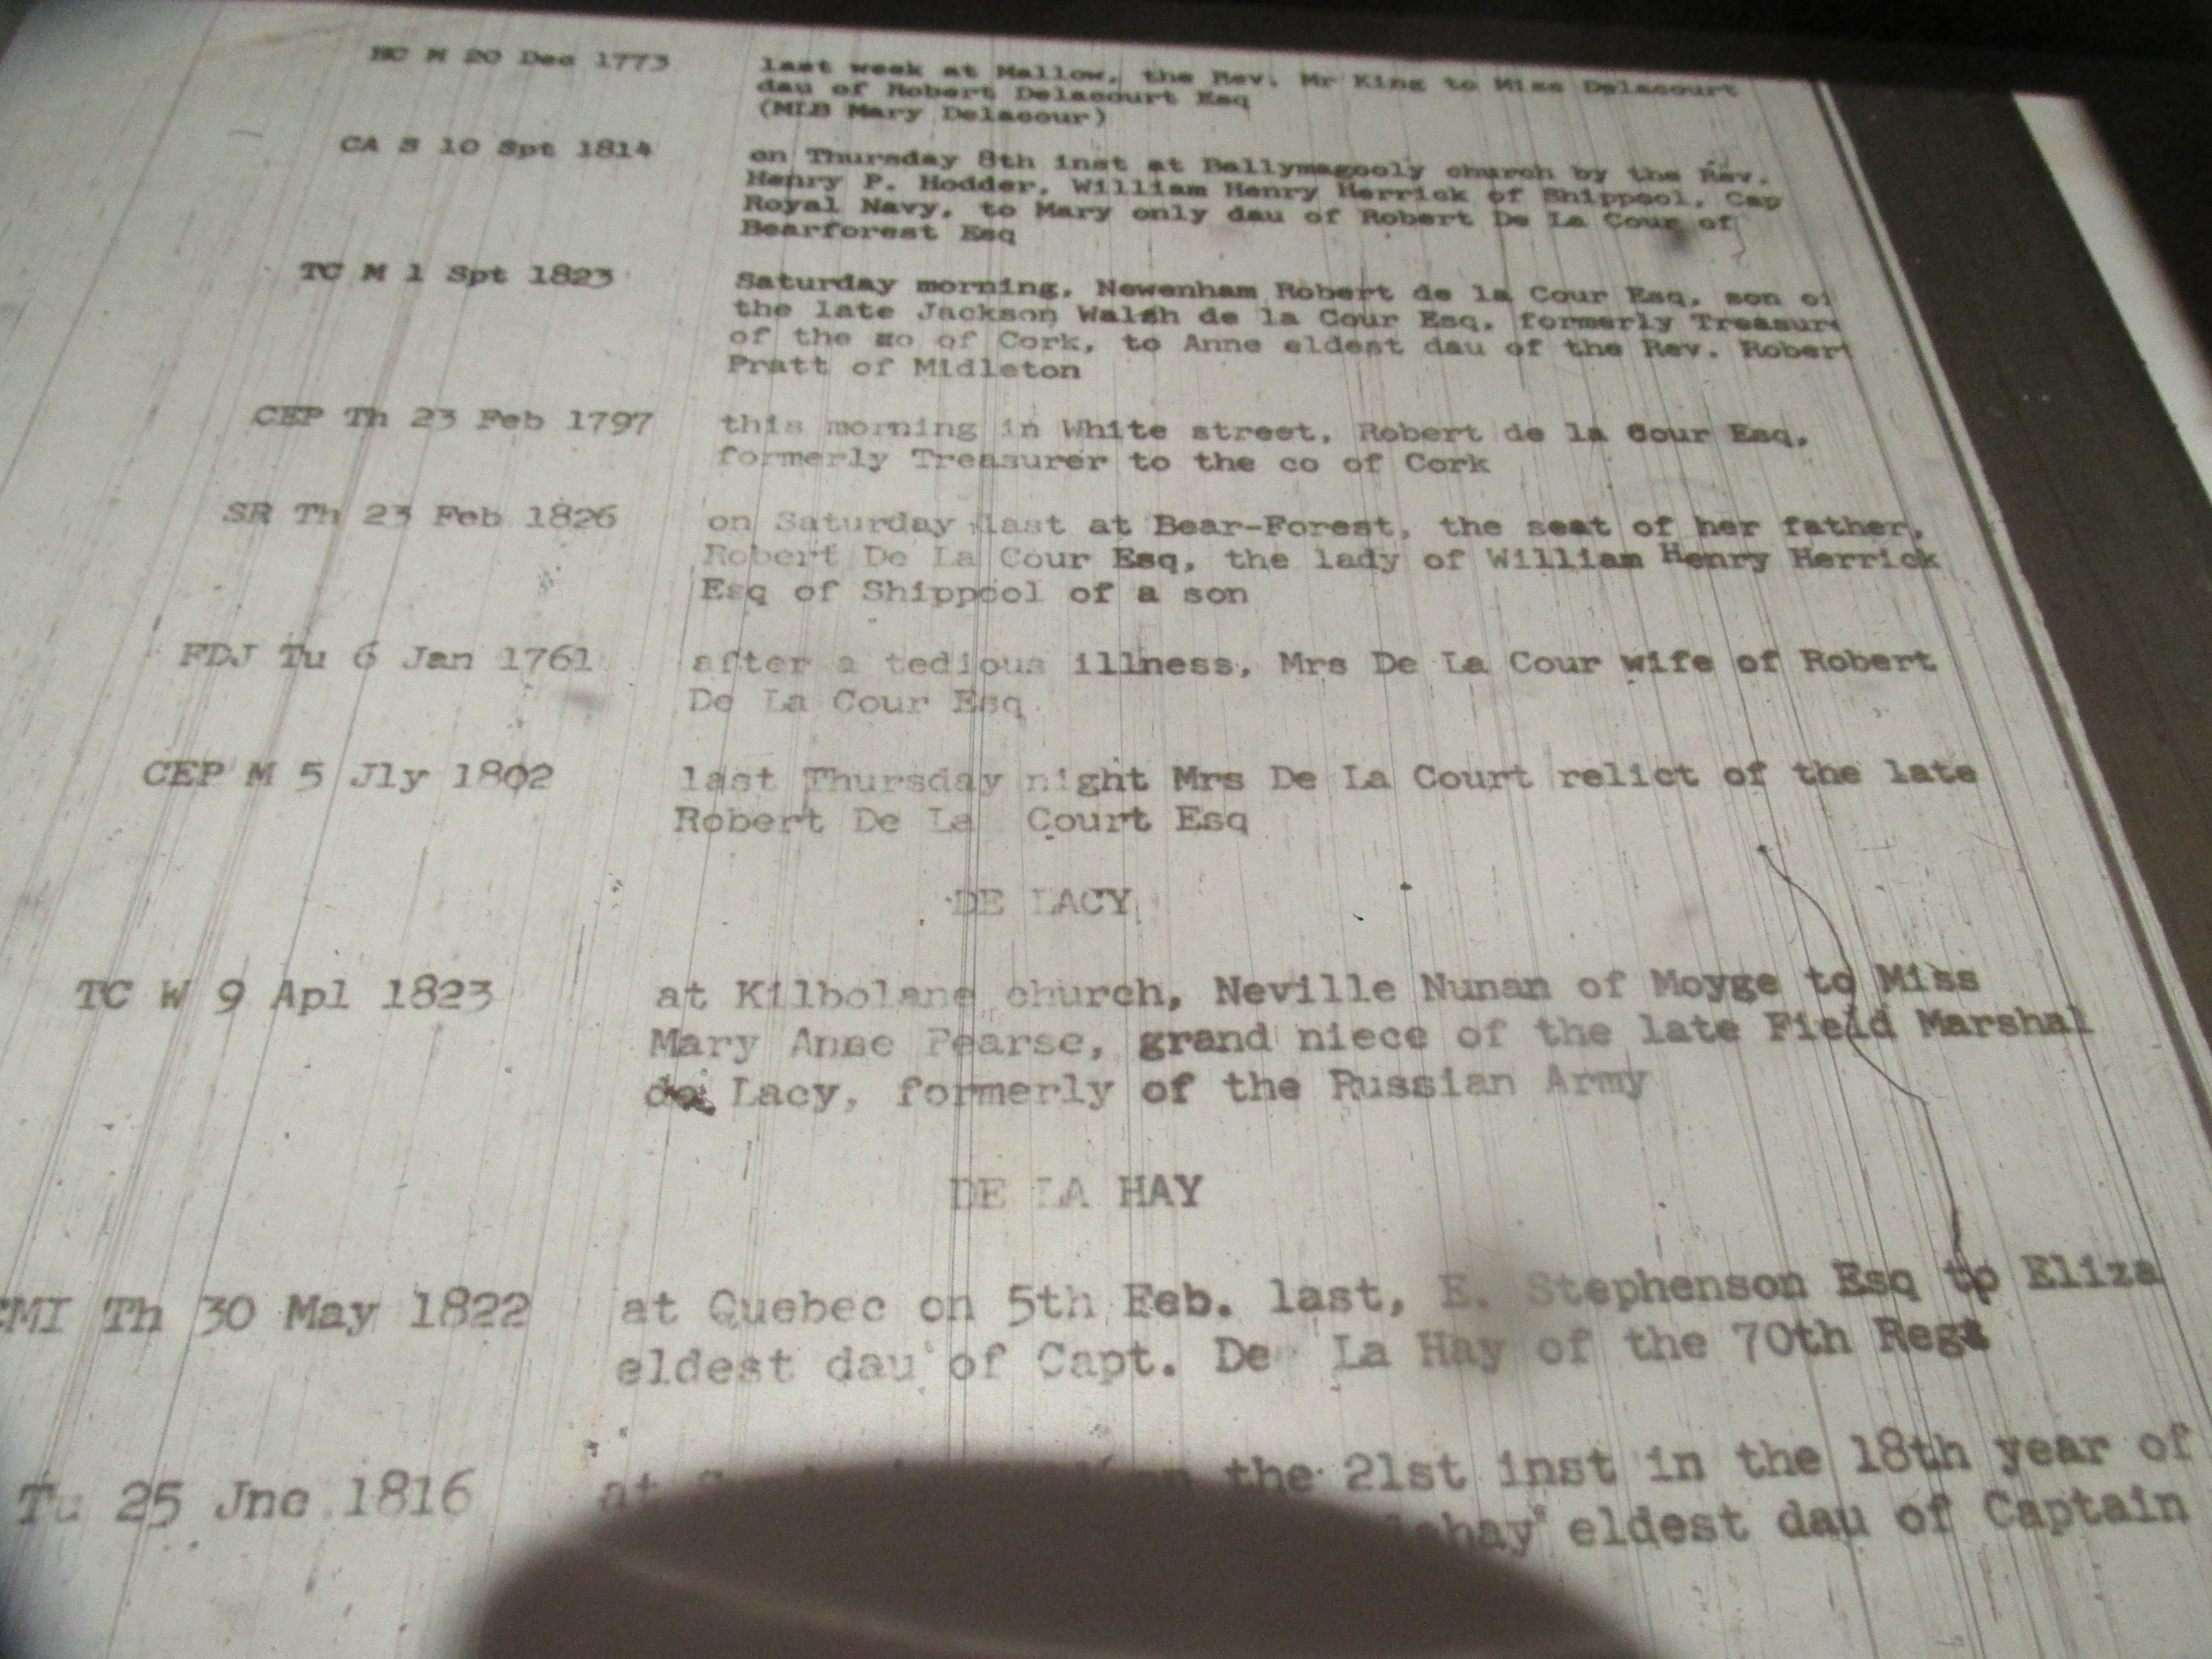 HC M 20 Dec 1773 last week at Mallow, the Rev. Mr King to Miss Delacourt
dau of Robert Delacourt Esq
(MLB Mary Delacour)
CA S 10 Spt 1814 on Thursday 8th inst at Ballymagooly church by the Rev.
Henry P. Hodder, William Henry Herrick of Shippool, Cap
Royal Navy, to Mary only dau of Robert De La Cour of
Bearforest Esq
TC M 1 Spt 1823 Saturday morning, Newenham Robert de la Cour Esq, son of
the late Jackson Walsh de la Cour Esq, formerly Treasure
of the co of Cork, to Anne eldest dau of the Rev. Robert
Pratt of Midleton
CEP Th 23 Feb 1797 this morning in White street, Robert de la Cour Esq,
formerly Treasurer to the co of Cork
SR Th 23 Feb 1826 on Saturday last at Bear-Forest, the seat of her father,
Robert De La Cour Esq, the lady of William Henry Herrick
Esq of Shippool of a son
FDJ Tu 6 Jan 1761 after a tedious illness, Mrs De La Cour wife of Robert
De La Cour Esq
CEP M 5 Jly 1802 last Thursday night Mrs De La Court relict of the late
Robert De La Court Esq
DE LACY
TC W 9 Apl 1823 at Kilbolane church, Neville Nunan of Moyge to Miss
Mary Anne Pearse, grand niece of the late Field Marshal
de Lacy, formerly of the Russian Army
DE LA HAY
CMI Th 30 May 1822 at Quebec on 5th Feb. last, E. Stephenson Esq to Eliza
eldest dau of Capt. De La Hay of the 70th Regt
Tu 25 Jne 1816 at the 21st inst in the 18th year of
eldest dau of Captain